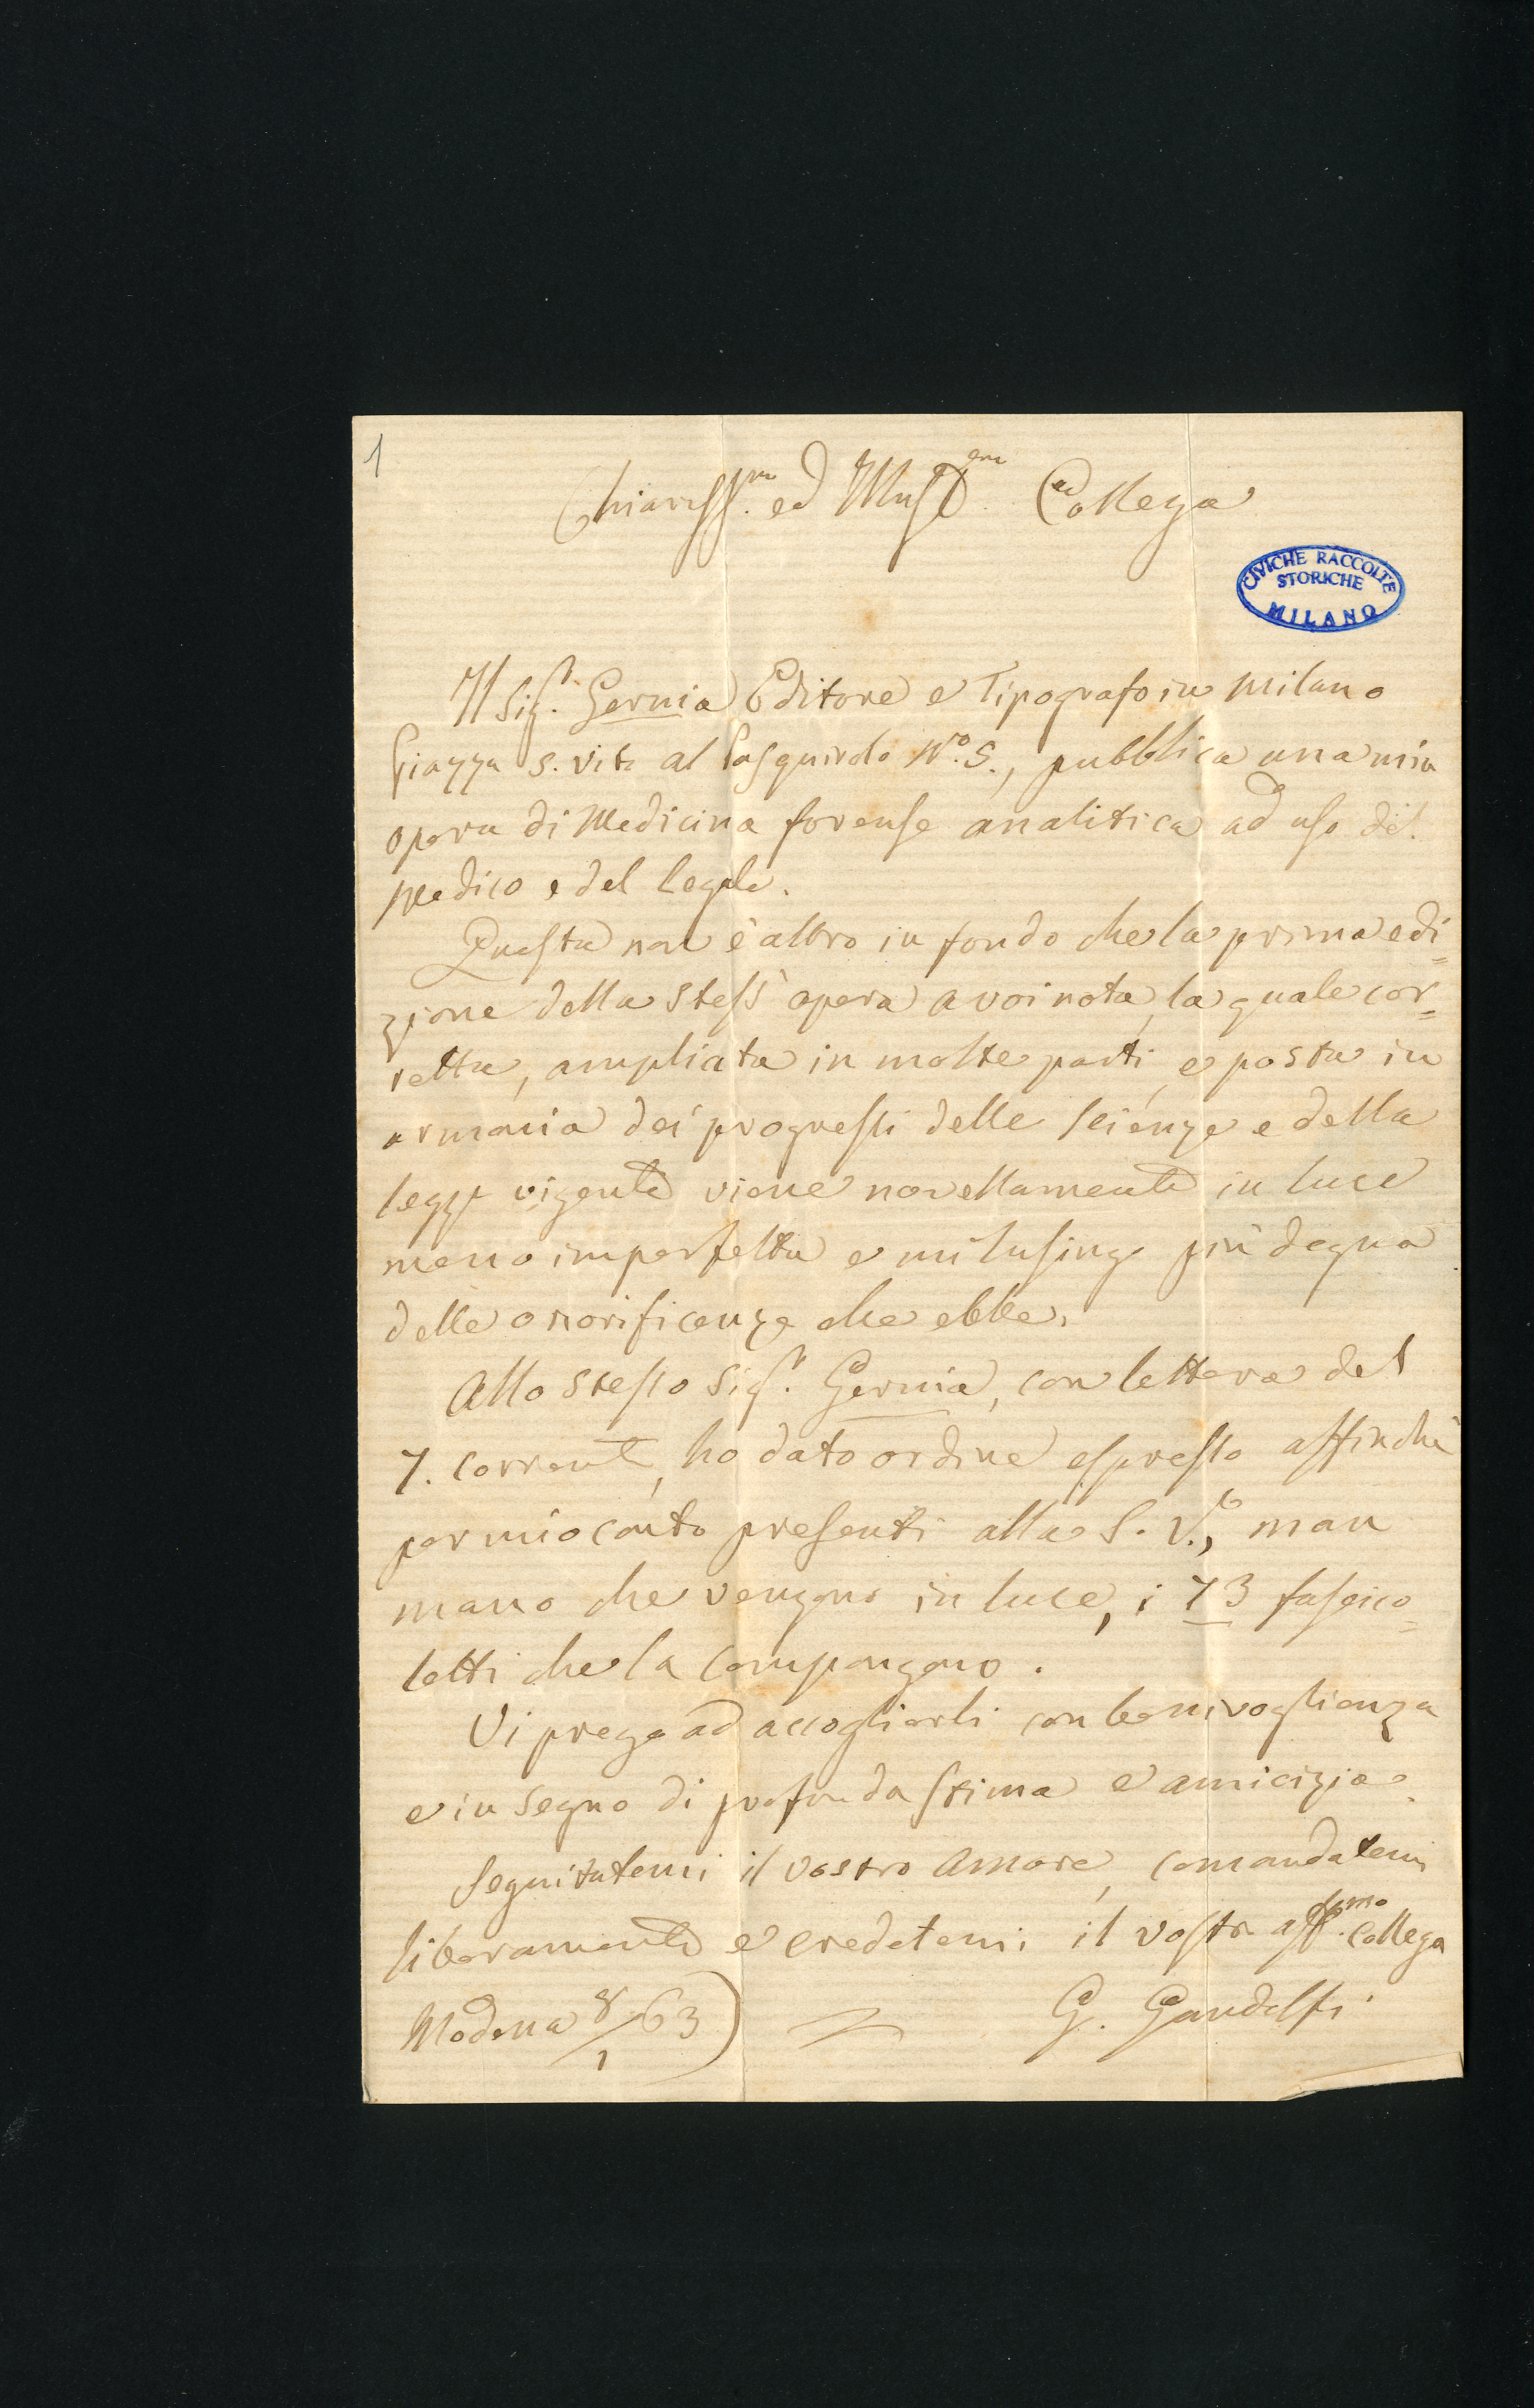 1
Chiariss.mo ed Illust.mo Collega
CIVICHE RACCOLTE
STORICHE
MILANO
Il Sig.r Gernia Editore e Tipografo in Milano
Piazza S. Vito al Pasquirolo N.o 5., pubblica una mia
opera di Medicina forense analitica ad uso del
Medico e del Legale.
Questa non è altro in fondo che la prima edi=
zione della stess' opera a voi nota, la quale cor=
retta, ampliata in molte parti, e posta in
armonia dei progressi delle scienze e della
legge vigente viene novellamente in luce
meno imperfetta e mi lusingo più degna
delle onorificenze che ebbe.
Allo stesso Sig.r Gernia, con lettera del
7. corrente, ho dato ordine espresso affinchè
per mio conto presenti alla S. V., man
mano che vengono in luce, i 73 fascico=
letti che la compongono.
Vi prego ad accoglierli con benivoglienza
e in segno di profonda stima e amicizia.
Seguitatemi il vostro amore, comandatemi
liberamente e credetemi il vostro aff.mo Collega
Modena 8/1 63) G. Gandolfi